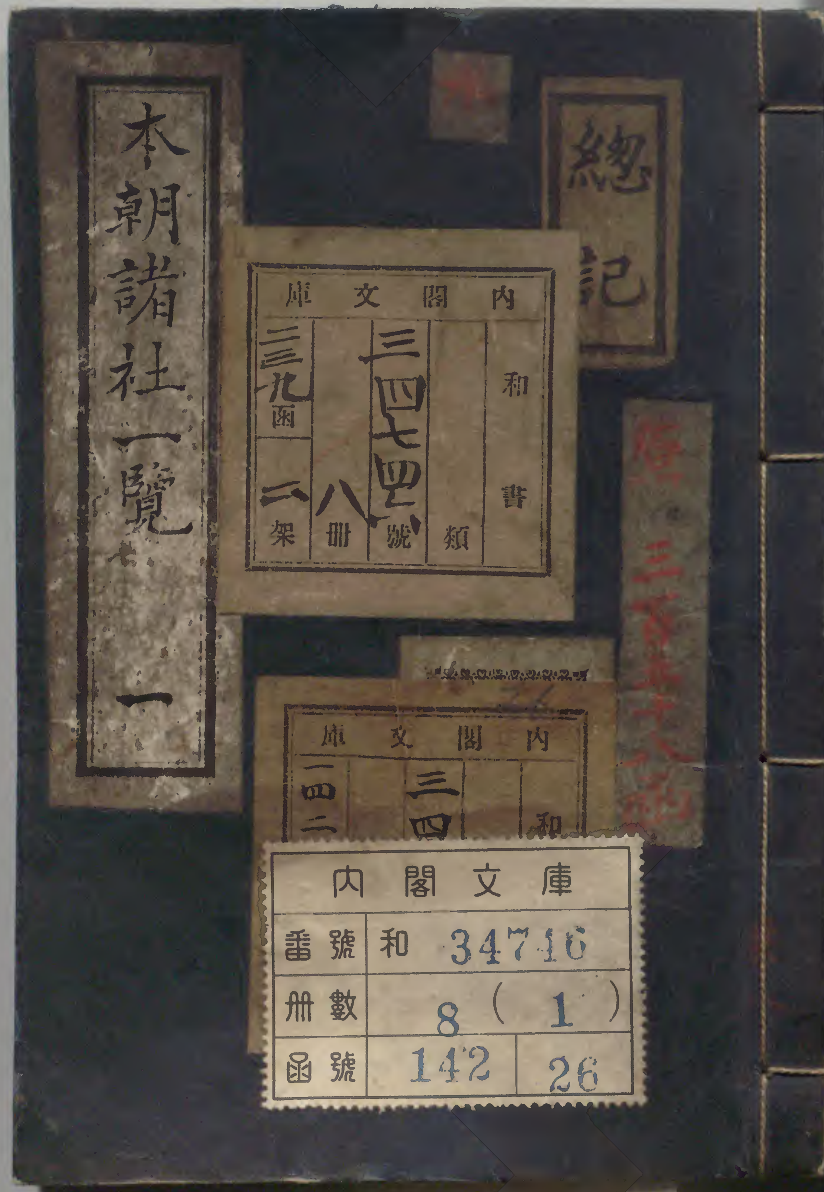 本朝諸社一覽 一
總記
内閣文庫
和書
類
三四七四六號
八冊
二三九函
二架
三百五十八函
内閣文庫
和
三四
一四二
内閣文庫
番號 和 34746
冊數 8 (1)
函號 142 26